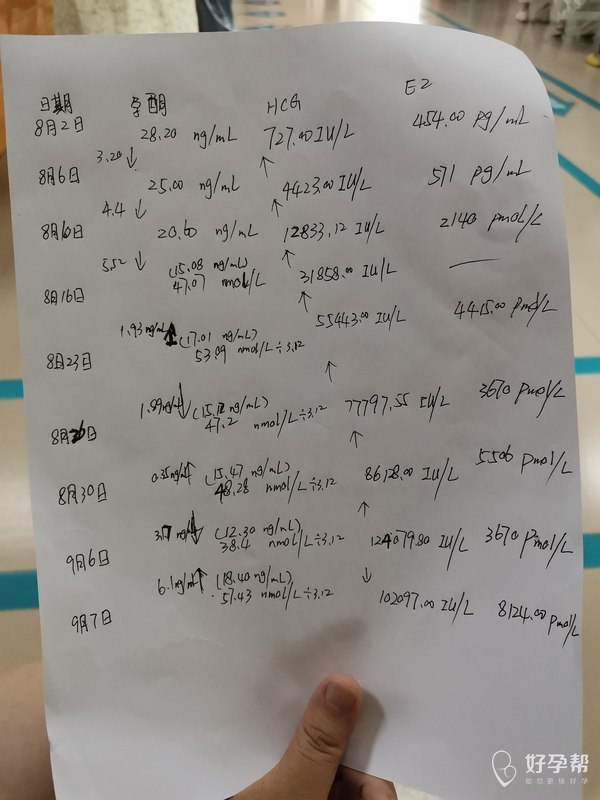 日期 孕酮 HCG E2
8月2日 28.20 ng/mL 727.00 IU/L 454.00 pg/mL
3.20↓ ↑
8月6日 25.00 ng/mL 4423.00 IU/L 571 pg/mL
4.4↓ ↑
20.60 ng/mL 12833.12 IU/L 2140 pmol/L
5.52↓ ↑
8月16日 (15.08 ng/mL) 47.07 nmol/L 31858.00 IU/L
1.93ng/mL↑ ↑
8月23日 (17.01 ng/mL) 53.09 nmol/L÷3.12 55443.00 IU/L 4415.00 pmol/L
1.89ng/ml↓ ↑
(15.12 ng/mL) 47.2 nmol/L÷3.12 77797.55 IU/L 3670 pmol/L
0.35ng/ml↑ ↑
8月30日 (15.47 ng/mL) 48.28 nmol/L÷3.12 86128.00 IU/L 5506 pmol/L
↓ ↑
9月6日 (12.30 ng/mL) 38.4 nmol/L÷3.12 124079.80 IU/L 3670 pmol/L
6.1ng/ml↑ ↓
9月7日 (18.40 ng/mL) 57.43 nmol/L÷3.12 102097.00 IU/L 8124.00 pmol/L
好孕帮
助您更快好孕